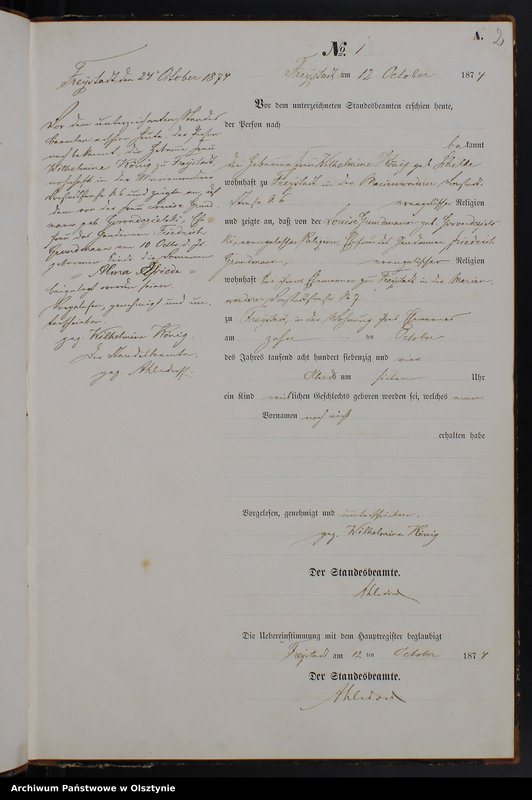 A.
2
No. 1
Freystadt am 12 October 1874
Vor dem unterzeichneten Standesbeamten erschien heute,
der Person nach
bekannt
die Hebamme Frau Wilhelmine König geb
wohnhaft zu Freystadt in der Marienwerder
No 6 evangelischer Religion
und zeigte an, daß von der Louise Grundmann geb
evangelischer Religion, Ehefrau des Friedrich
Grundmann, evangelischer Religion
wohnhaft bei ihrem Ehemanne zu Freystadt in der Marien
werder No 7
zu Freystadt, in der Wohnung ihres Ehemannes
am zehn ten October
des Jahres tausend acht hundert siebenzig und vier
Abends um sieben Uhr
ein Kind weiblichen Geschlechts geboren worden sei, welches einen
Vornamen noch nicht
erhalten habe
Vorgelesen, genehmigt und unterschrieben.
gez. Wilhelmine König
Der Standesbeamte.
Die Uebereinstimmung mit dem Hauptregister beglaubigt
Freystadt am 12 ten October 1874
Der Standesbeamte.
Freystadt den 24 October 1874
Vor dem unterzeichneten Standes
beamten erschien heute, der Person
nach bekannt, die Hebamme Frau
Wilhelmine König zu Freystadt
wohnhaft in der Marienwerder
No 6 und zeigte an, daß
dem von der Frau Louise Grund
mann geb Ehe
frau des Friedrich
Grundmann am 10 October d. Js.
geborenen Kinde die Vornamen
beigelegt worden seien.
Vorgelesen, genehmigt und un
terschrieben
gez. Wilhelmine König.
Der Standesbeamte
gez.
Archiwum Państwowe w Olsztynie